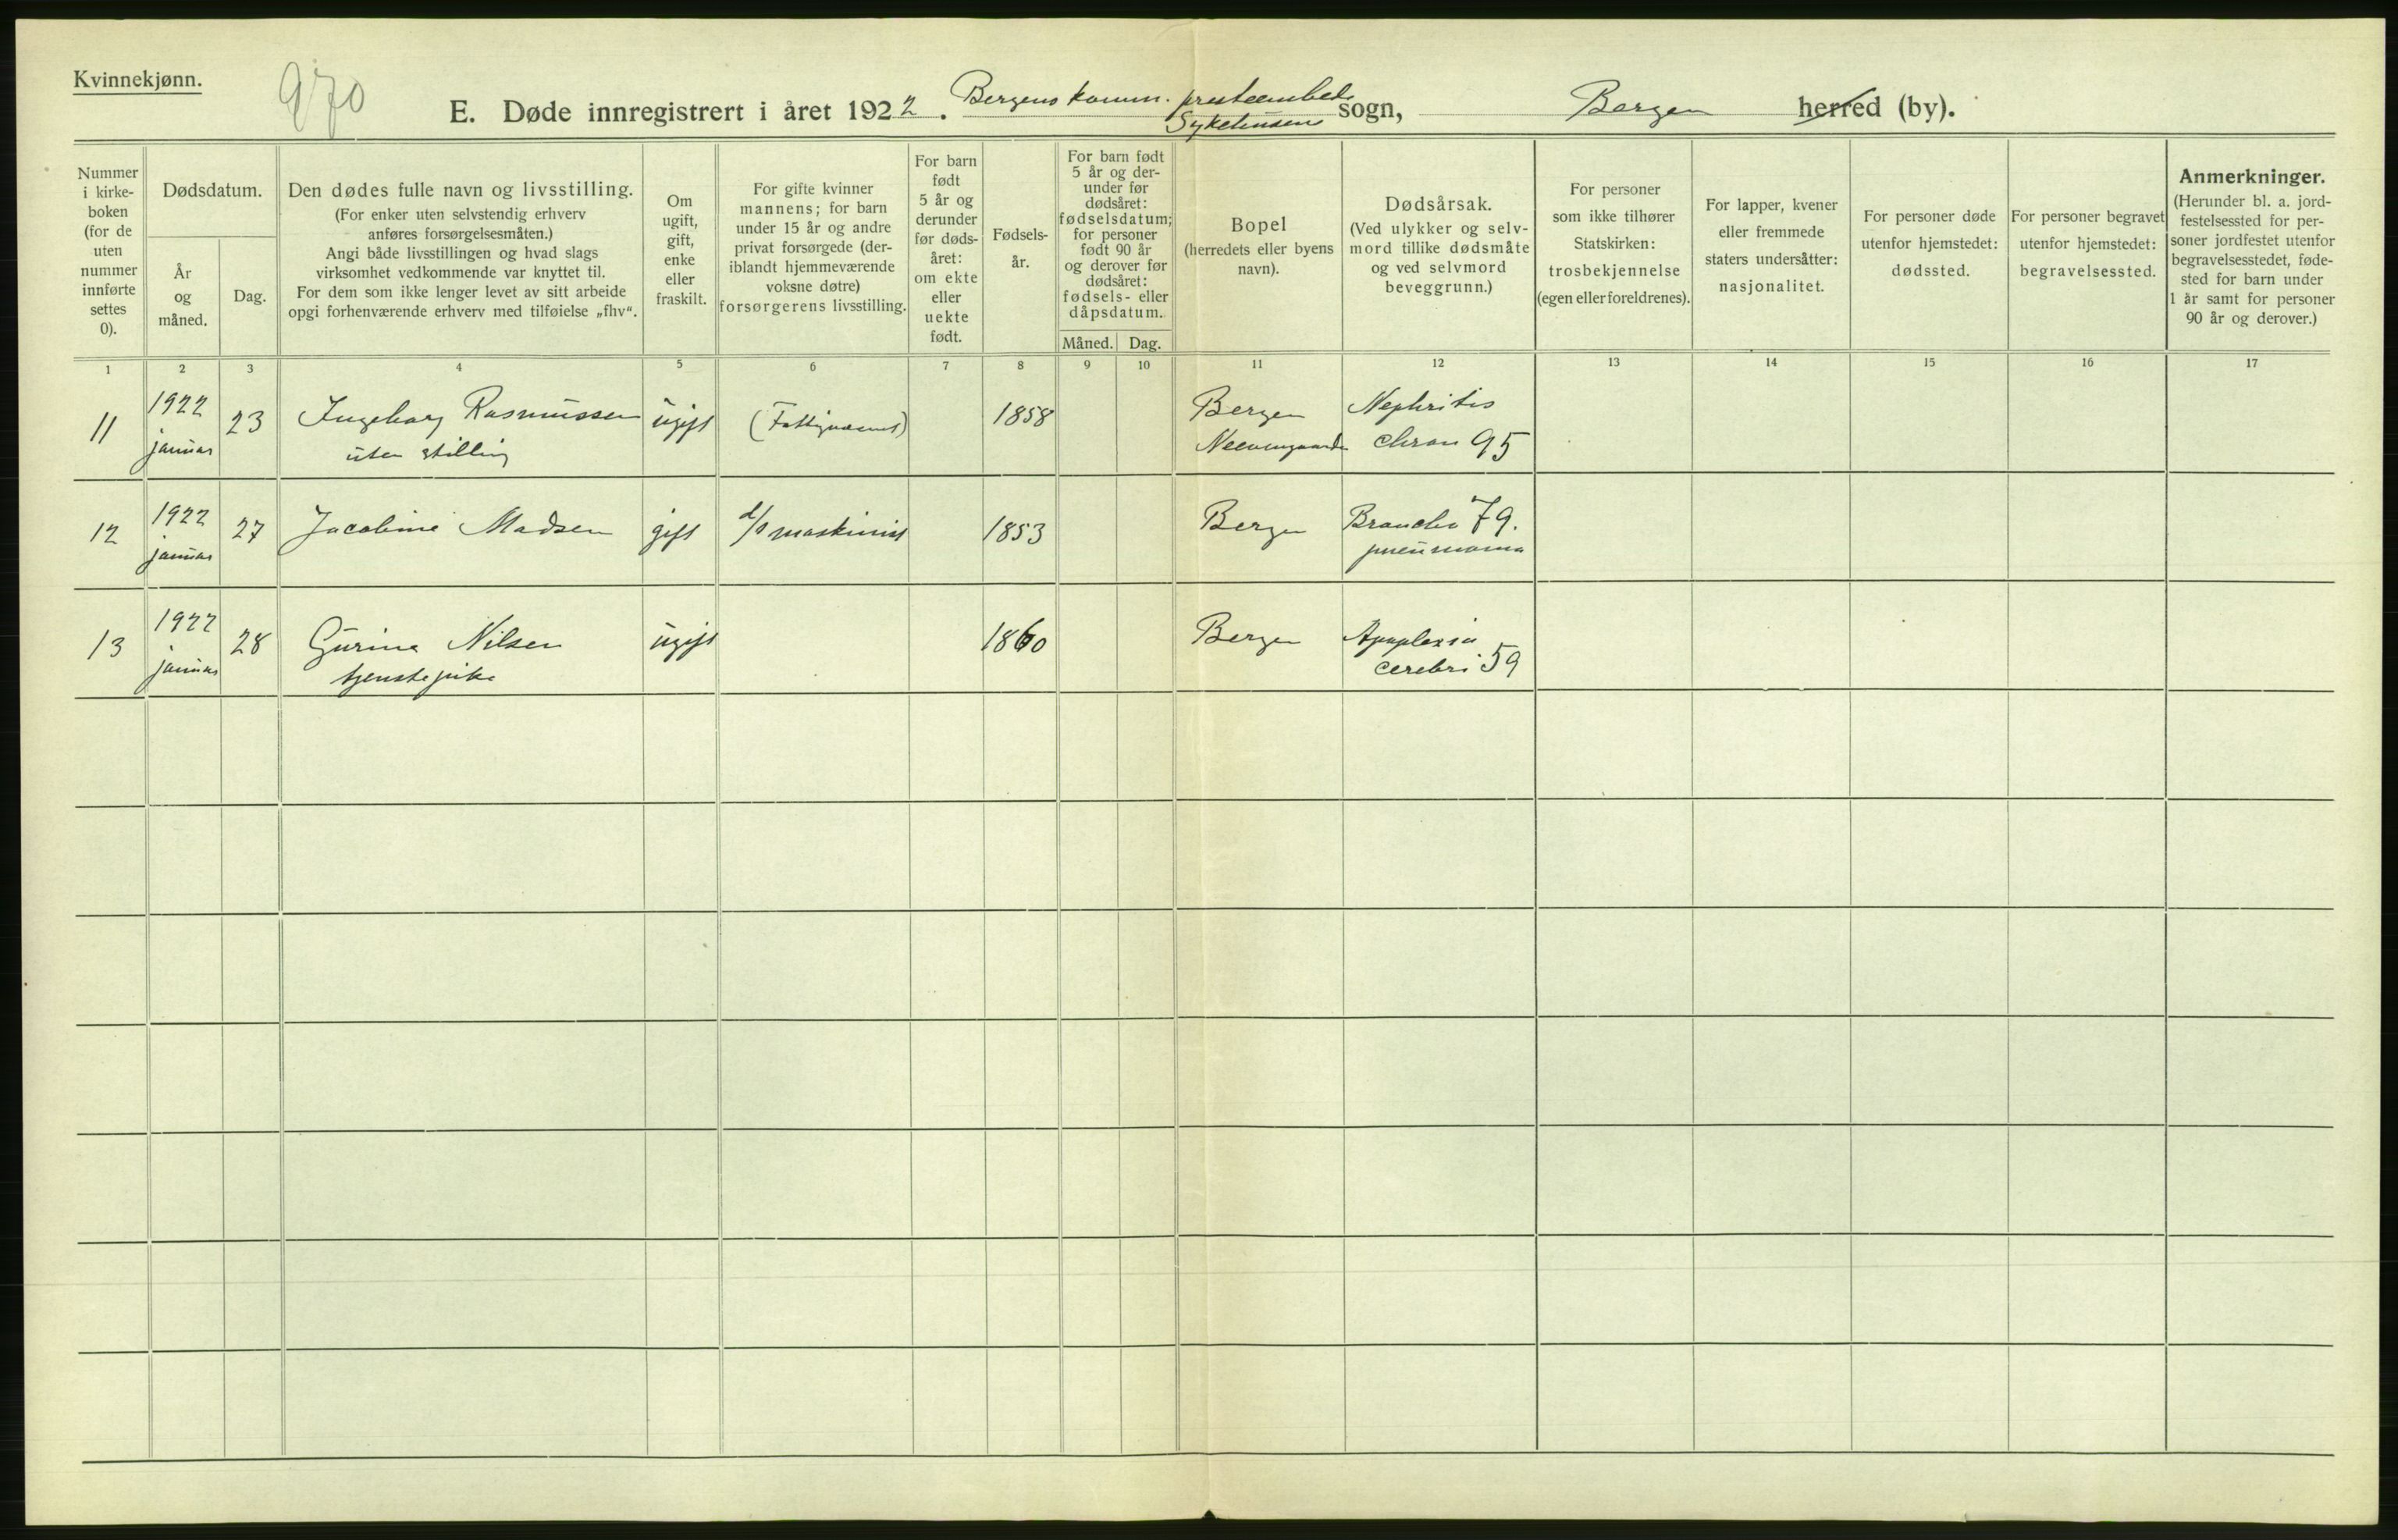 Kvinnekjønn.
970
E. Døde innregistrert i året 1922. Bergens komm. presteembede
Sykehusene sogn, Bergen herred (by).
Nummer
i kirke-
boken
(for de
uten
nummer
innførte
settes
0).
Dødsdatum.
År
og
måned.
Dag.
Den dødes fulle navn og livsstilling.
(For enker uten selvstendig erhverv
anføres forsørgelsesmåten.)
Angi både livsstillingen og hvad slags
virksomhet vedkommende var knyttet til.
For dem som ikke lenger levet av sitt arbeide
opgi forhenværende erhverv med tilføielse „fhv“.
Om
ugift,
gift,
enke
eller
fraskilt.
For gifte kvinner
mannens; for barn
under 15 år og andre
privat forsørgede (der-
iblandt hjemmeværende
voksne døtre)
forsørgerens livsstilling.
For barn
født
5 år og
derunder
før døds-
året:
om ekte
eller
uekte
født.
Fødsels-
år.
For barn født
5 år og der-
under før
dødsåret:
fødselsdatum;
for personer
født 90 år
og derover før
dødsåret:
fødsels- eller
dåpsdatum.
Måned. Dag.
Bopel
(herredets eller byens
navn).
Dødsårsak.
(Ved ulykker og selv-
mord tillike dødsmåte
og ved selvmord
beveggrunn.)
For personer
som ikke tilhører
Statskirken:
trosbekjennelse
(egen eller foreldrenes).
For lapper, kvener
eller fremmede
staters undersåtter:
nasjonalitet.
For personer døde
utenfor hjemstedet:
dødssted.
For personer begravet
utenfor hjemstedet:
begravelsessted.
Anmerkninger.
(Herunder bl. a. jord-
festelsessted for per-
soner jordfestet utenfor
begravelsesstedet, føde-
sted for barn under
1 år samt for personer
90 år og derover.)
1 2 3 4 5 6 7 8 9 10 11 12 13 14 15 16 17
11 1922 23 Ingeborg Rasmussen ugift 1858 Bergen Nephritis
januar uten stilling chron 95
12 1922 27 Jacobine Madsen gift maskinist 1853 Bergen Broncho 79.
januar pneumonia
13 1922 28 Gurina Nilsen ugift 1860 Bergen Apoplexia
januar tjenestepike cerebri 59